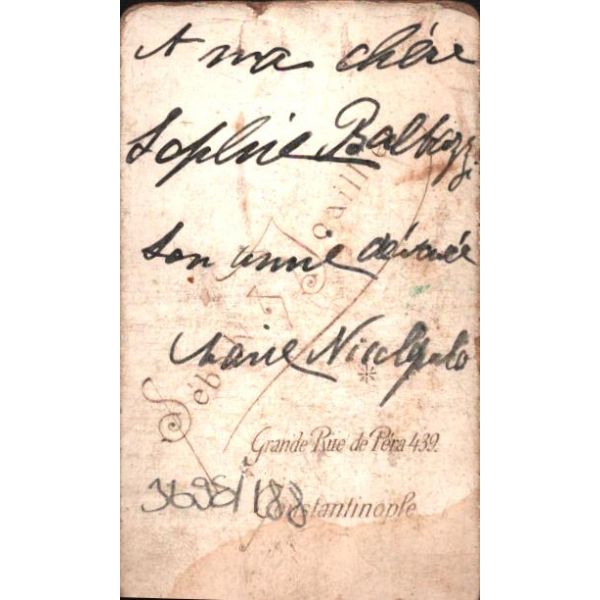 A ma chère
Sophie Baltazzi
son amie dévouée
Marie
Sébah & Joaillier
Grande Rue de Péra 439.
Constantinople
3698/188